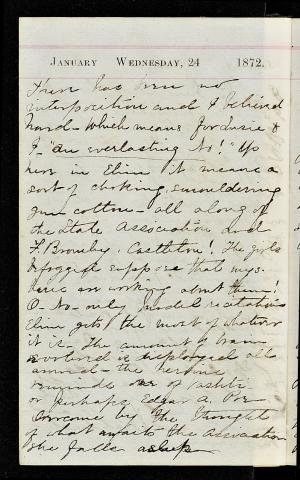 January Wednesday, 24 1872.
There has been no
interposition and I believed
hard - which means for Susie &
I - "an everlasting No!" Up
here in Elim it means a
sort of choking, smouldering
gun cotton - all along of
the State Association and
F. Bromley. Castleton! The girls
suppose that mys-
teries are working about them!
O - No - only model recitations
Elim gets the most of whatever
it is. The amount of brain
is deployed all
around - the heroine
reminds me of Vashti
or perhaps Edgar A. Poe
Overcome by the thought
of what awaits the Association
she falls asleep